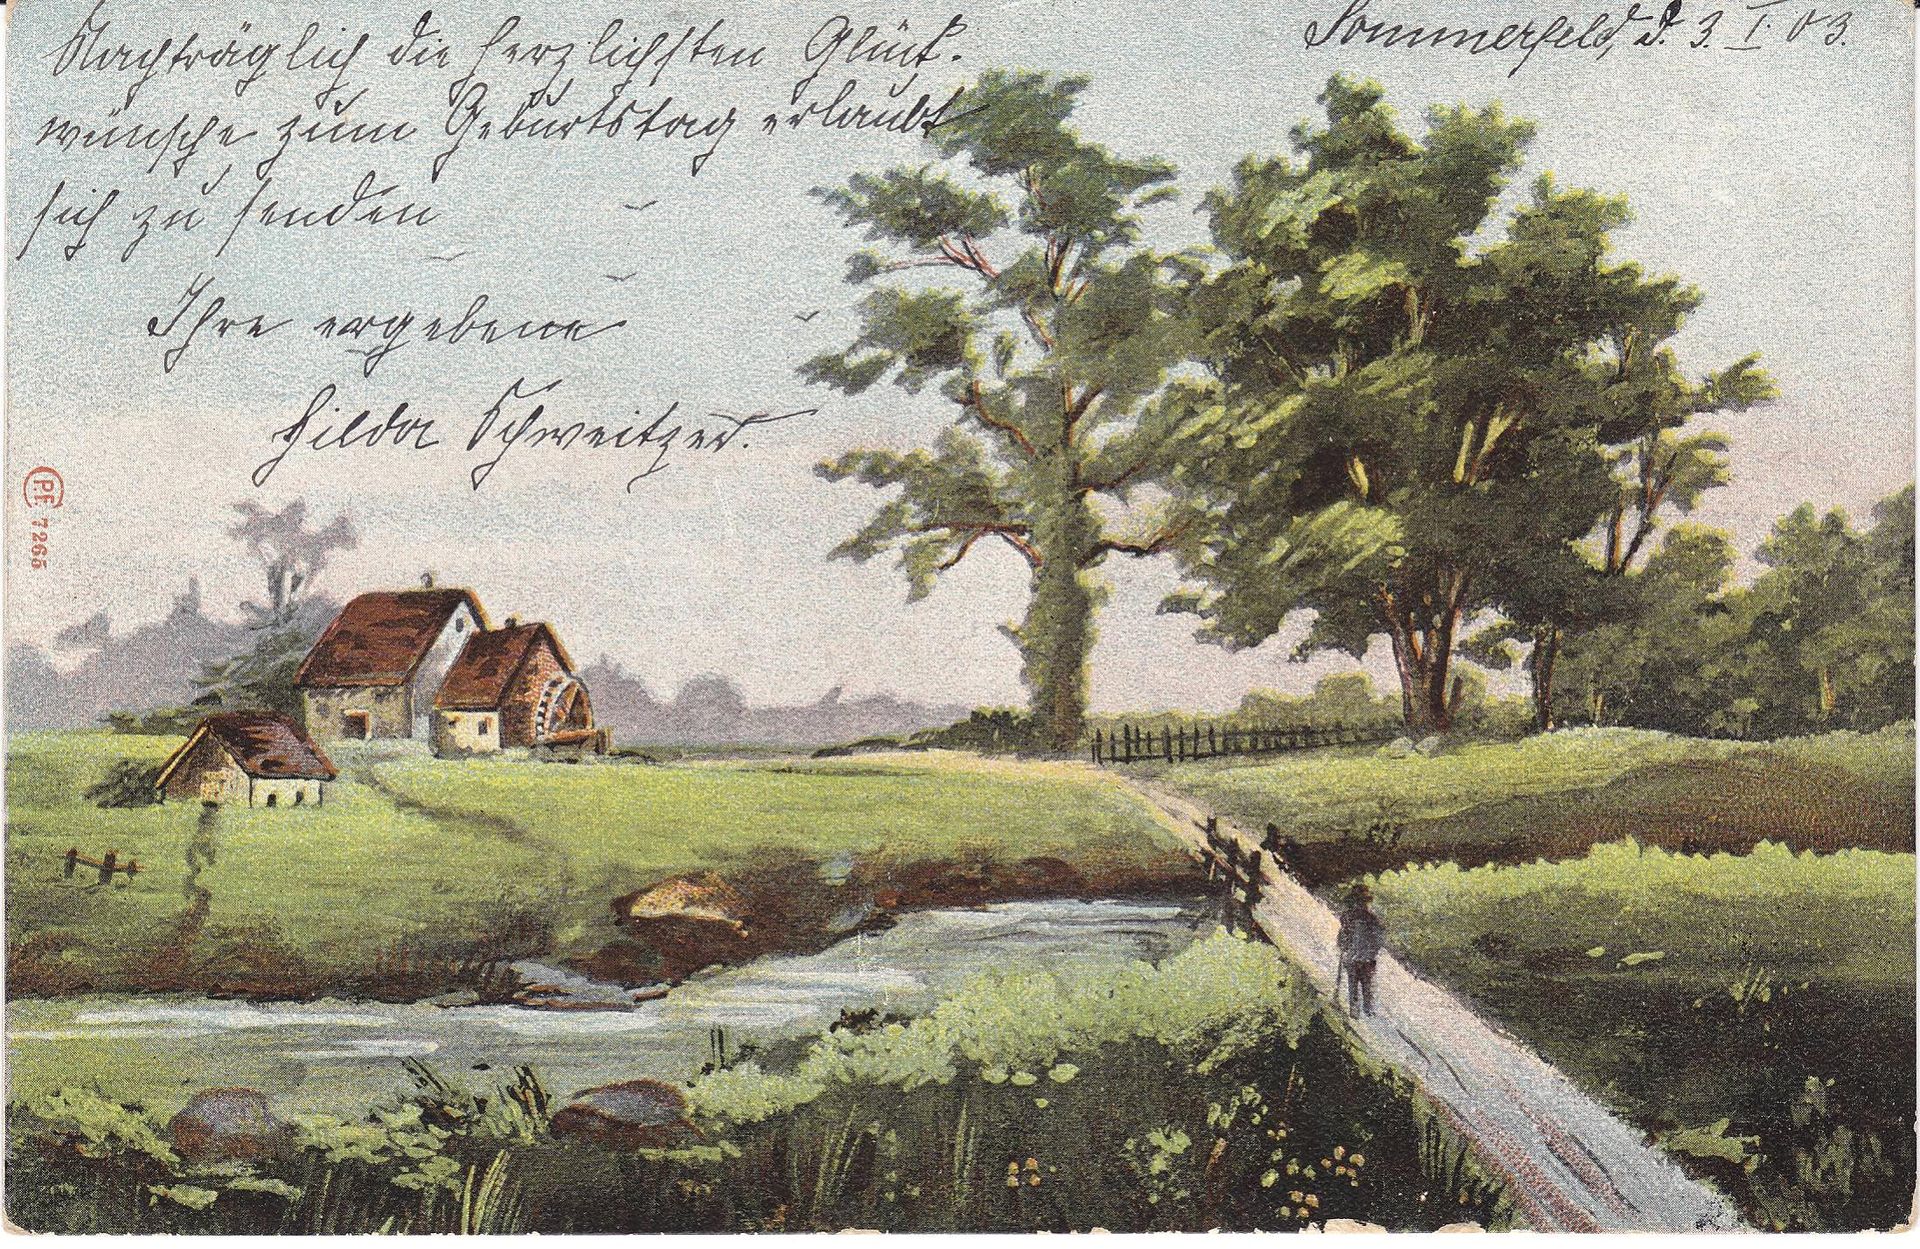 Sommerfeld, d. 3. I. 03.
Nachträglich die herzlichsten Glück-
wünsche zum Geburtstag erlaubt
sich zu senden
Ihre ergebene
Hilda Schweitzer.
P.F. 7265